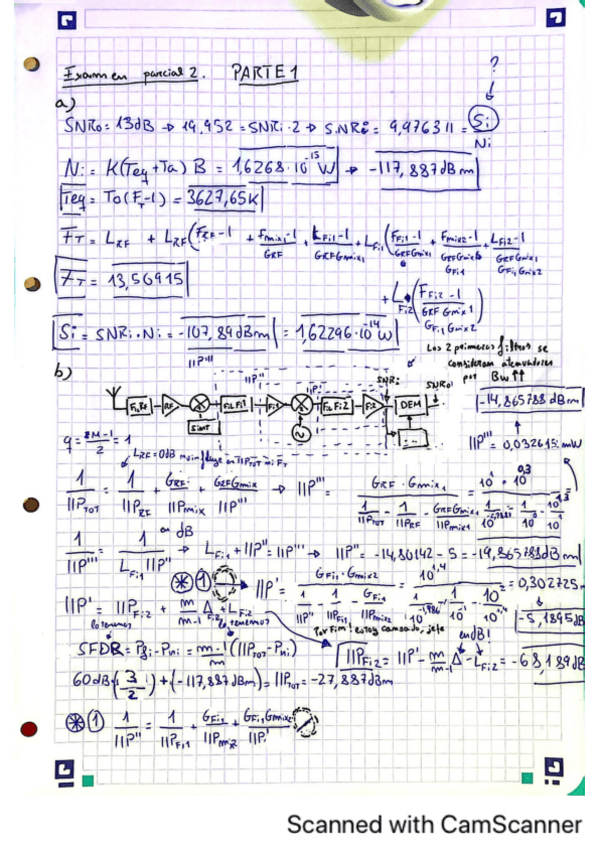 Examen parcial 2. PARTE 1
?
a)
SNRo = 13dB → 19,952 = SNRi · 2 → SNRi = 9,976311 = Si / Ni
Ni = K(Teq+Ta) B = 1,6268·10^-15 W → -117,887 dBm
Teq = To(FT-1) = 3627,65K
FT = LRF + LRF(FRF-1 + Fmix1-1 / GRF + LFi1-1 / GRFGmix1 + LFi1(FFi1-1 / GRFGmix1 + Fmix2-1 / GRFGmix1GFi1 + LFi2-1 / GRFGmix1GFi1Gmix2
FT = 13,56915
+ LFi2(FFi2-1 / GRF Gmix1 GFi1 Gmix2)
Si = SNRi·Ni = -107,89dBm = 1,62296·10^-14 W
Los 2 primeros filtros se
consideran atenuadores
por BW↑↑
b)
IIP''' IIP'' IIP' SNRi SNRo
RF Fil Fi1 Fi1 Fil Fi2 Fi2 DEM
-14,865788 dBm
q = 2M-1 / 2 = 1
LRF=0dB no influye en IIPTOT ni FT
IIP''' = 0,032615 mW
1/IIPTOT = 1/IIPRF + GRF/IIPmix + GRFGmix/IIP''' → IIP''' = GRF · Gmix1 / (1/IIPTOT - 1/IIPRF - GRF
en dB
1/IIP''' = 1/(LFi1 IIP'') → LFi1 + IIP'' = IIP''' → IIP'' = -14,80142 - 5 = -19,865788dBm
* 1 IIP' = GFi1·Gmix2 / (1/IIP'' - 1/IIPFi1 - GFi1/IIPmix2) = 0,302725m
-5,1895dB
IIP' = IIPFi2 + m/m-1 Δ + LFi2
lo tenemos lo tenemos
Por Fin! estoy cansado, jefe
en dB!
SFDR = Pgi - Pni = m-1/m (IIPTOT - Pni)
IIPFi2 = IIP' - m/m-1 Δ - LFi2 = -68,189dB
60dB(3/2) + (-117,887dBm) = IIPTOT = -27,887dBm
* 1 1/IIP'' = 1/IIPFi1 + GFi1/IIPmix2 + GFi1Gmix2/IIP'
Scanned with CamScanner